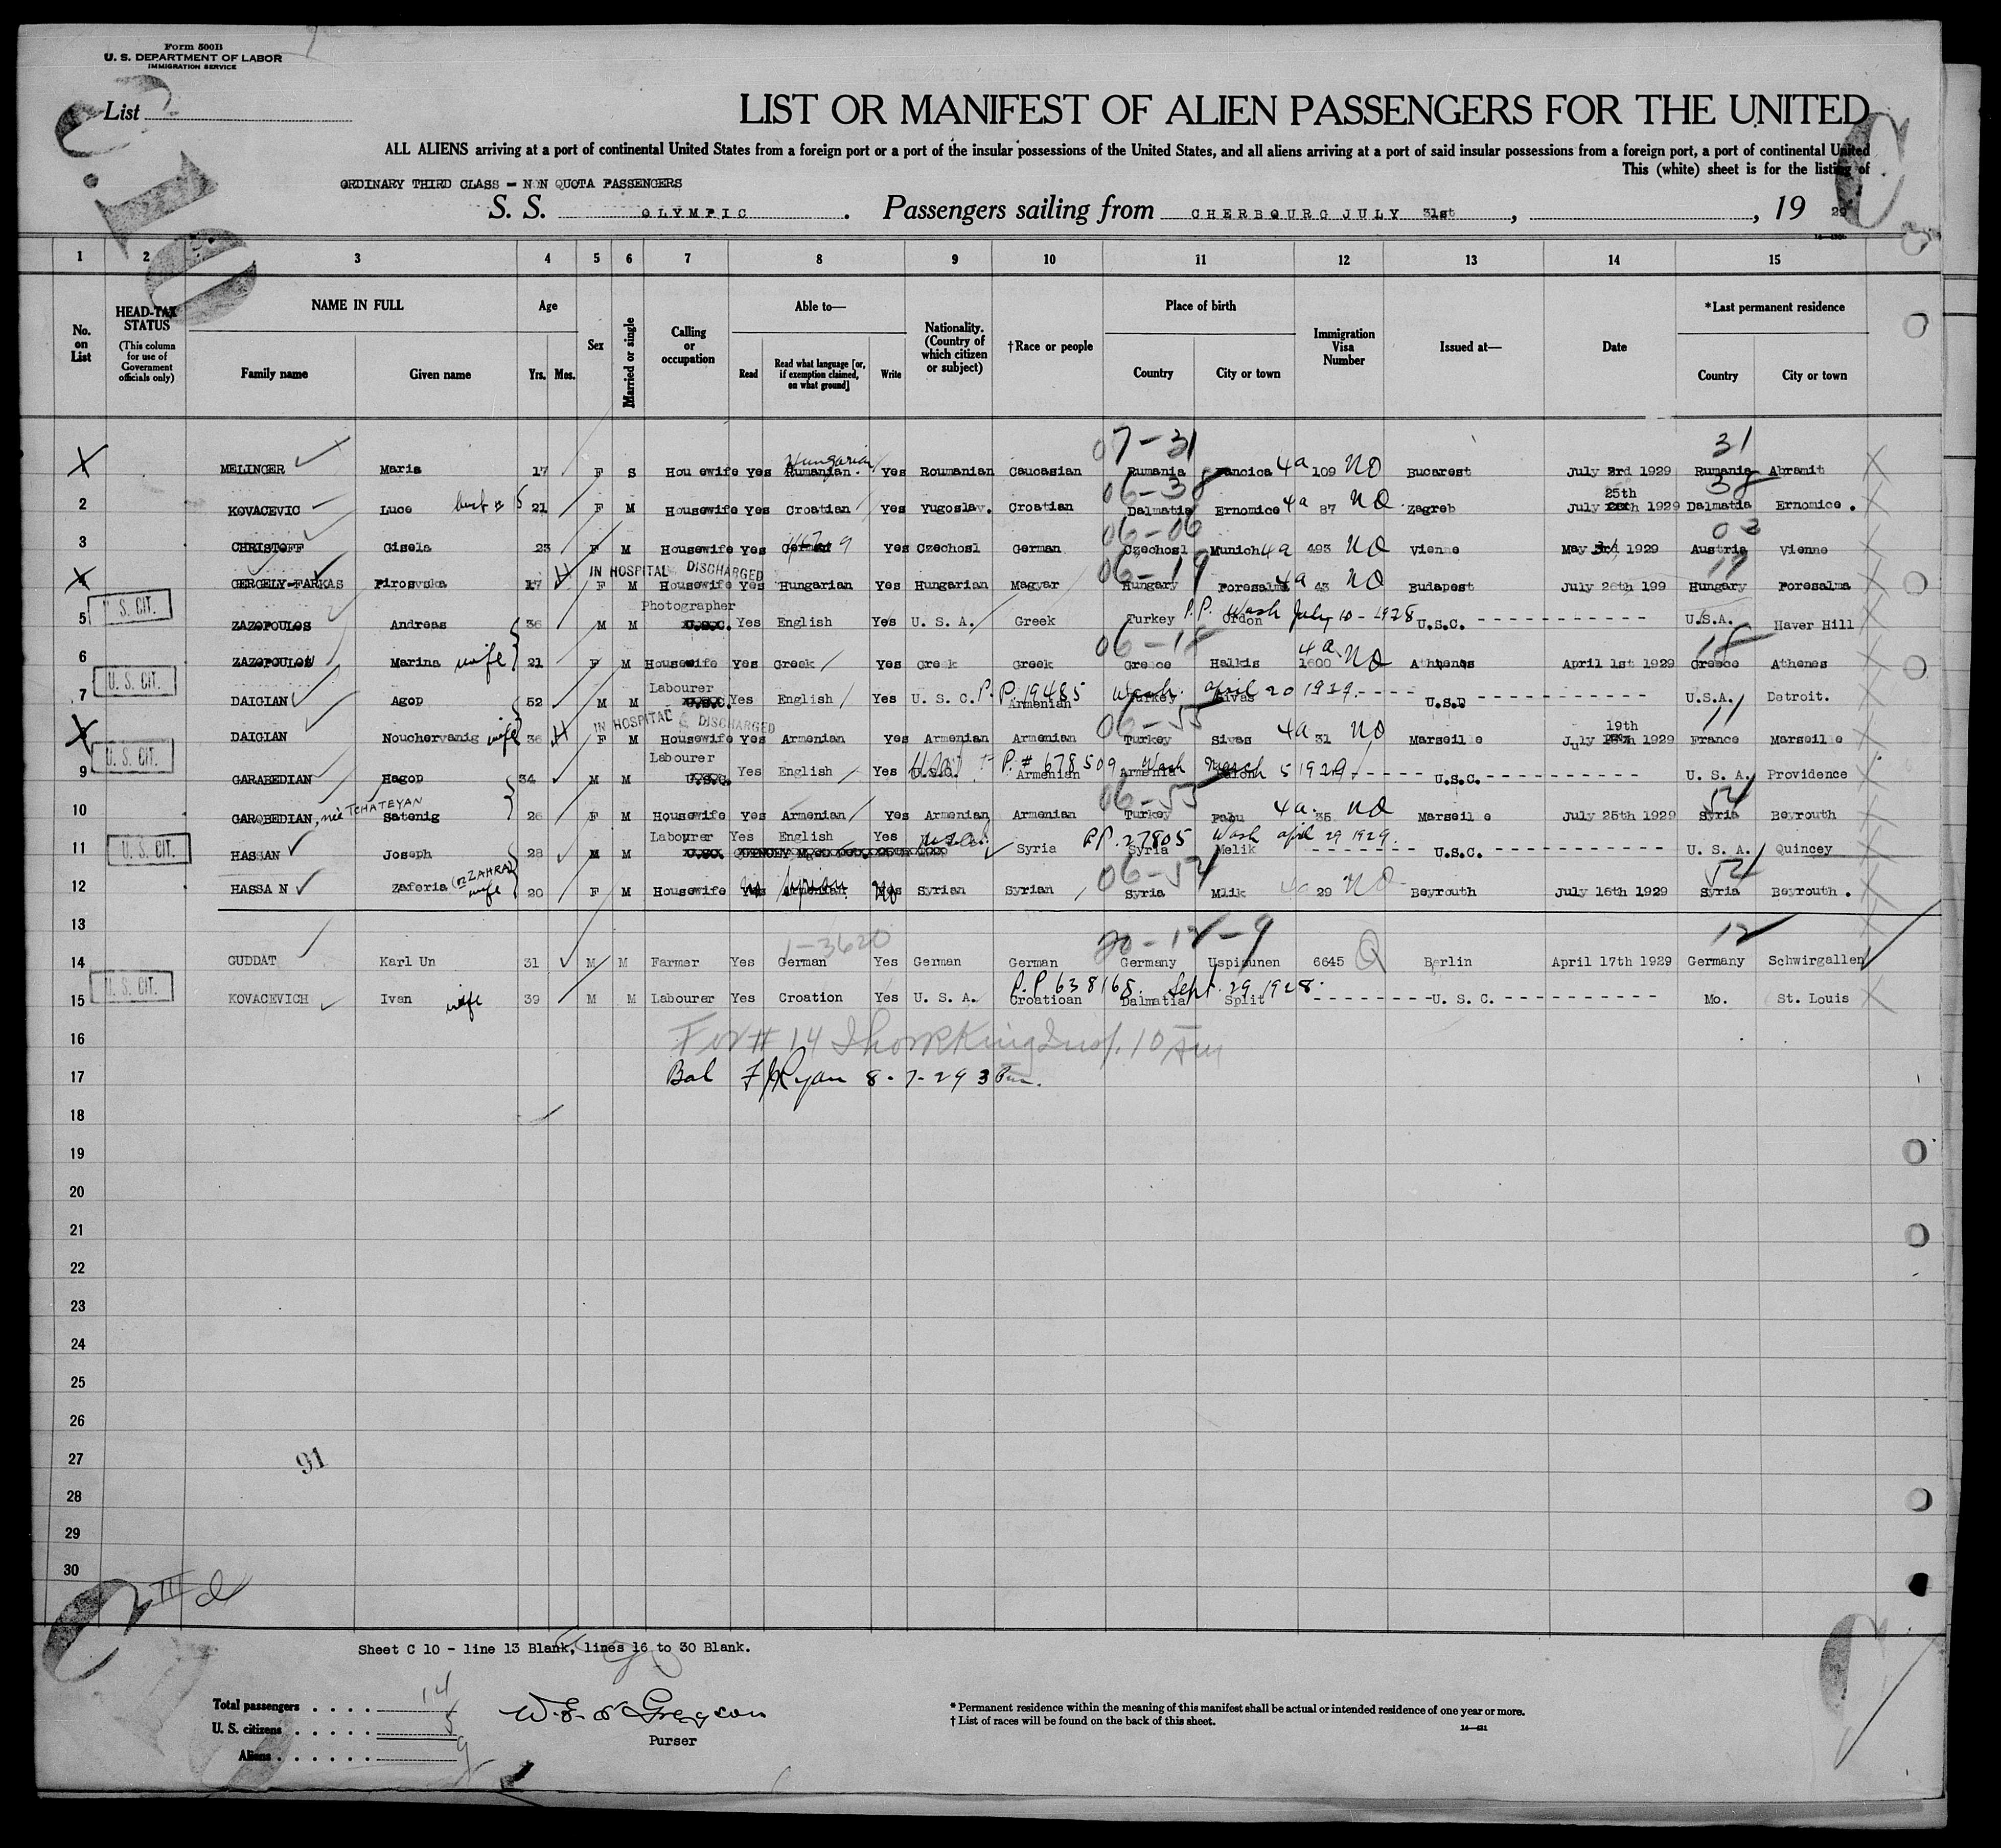 Form 500B
U. S. DEPARTMENT OF LABOR
IMMIGRATION SERVICE
List
LIST OR MANIFEST OF ALIEN PASSENGERS FOR THE UNITED
ALL ALIENS arriving at a port of continental United States from a foreign port or a port of the insular possessions of the United States, and all aliens arriving at a port of said insular possessions from a foreign port, a port of continental United
This (white) sheet is for the listing of
ORDINARY THIRD CLASS - NON QUOTA PASSENGERS
S. S. OLYMPIC . Passengers sailing from CHERBOURG JULY 31st , , 19 29
1 2 3 4 5 6 7 8 9 10 11 12 13 14 15
No. on List
HEAD-TAX STATUS
(This column for use of Government officials only)
NAME IN FULL
Family name Given name
Age
Yrs. Mos.
Sex
Married or single
Calling or occupation
Able to—
Read Read what language [or, if exemption claimed, on what ground] Write
Nationality. (Country of which citizen or subject)
†Race or people
Place of birth
Country City or town
Immigration Visa Number
Issued at—
Date
*Last permanent residence
Country City or town
07-31 31
Hungarian
MELINGER Maria 17 F S Hou ewife Yes Rumanian. Yes Roumanian Caucasian Rumania 4a 109 NO Bucarest July 3rd 1929 Rumania Abramit
06-38 25th 38
2 KOVACEVIC Luce 21 F M Housewife Yes Croatian Yes Yugoslav. Croatian Dalmatia Ernomice 4a 87 NO Zagreb July 1929 Dalmatia Ernomice .
06-06 03
3 CHRISTOFF Gisela 23 F M Housewife Yes German Yes Czechosl German Czechosl Munich 4a 493 NO Vienne May 3rd 1929 Austria Vienne
IN HOSPITAL DISCHARGED 06-19 17
4 GERGELY-FARKAS Pirosvska 17 H F M Housewife Yes Hungarian Yes Hungarian Magyar Hungary Foresalma 4a 43 NO Budapest July 26th 199 Hungary Foresalma
U. S. CIT.
Photographer P.P. Wash July 10-1928
5 ZAZOPOULOS Andreas 36 M M U.S.C. Yes English Yes U. S. A. Greek Turkey Ordon U.S.C. - - - - - - - - - - - - U.S.A. Haver Hill
06-18 4a 18
6 ZAZOPOULOS Marina wife 21 F M Housewife Yes Greek Yes Greek Greek Greece Halkis 1600 NO Athenes April 1st 1929 Greece Athenes
U. S. CIT.
Labourer P.P. 19485 Wash. April 20 1929
7 DAIGIAN Agop 52 M M U.S.C. Yes English Yes U. S. C. Armenian Turkey Sivas - - - - U.S.C - - - - - - - - - - - - U.S.A. Detroit.
IN HOSPITAL DISCHARGED 06-55 19th 11
8 DAIGIAN Nouchervanig wife 36 H F M Housewife Yes Armenian Yes Armenian Armenian Turkey Sivas 4a 31 NO Marseille July 1929 France Marseille
U. S. CIT.
Labourer P.# 678509 Wash March 5 1929
9 GARABEDIAN Hagop 34 M M U.S.C. Yes English Yes U.S.C. Armenian Armenia - - - - - U.S.C. - - - - - - - - - - - - U. S. A. Providence
née TCHATEYAN 06-55 54
10 GAROBEDIAN, Satenig 26 F M Housewife Yes Armenian Yes Armenian Armenian Turkey Palu 4a. 35 NO Marseille July 25th 1929 Syria Beyrouth
U. S. CIT.
Labourer Yes English Yes P.P. 27805 Wash april 29 1929.
11 HASSAN Joseph 28 M M Syria Syria Melik - - - - - - - - U.S.C. - - - - - - - - - - - - U. S. A. Quincey
(or ZAHRA) 06-54 54
12 HASSAN Zaferia wife 20 F M Housewife Yes Armenian Yes Syrian Syrian Syria Mlik 4a 29 NO Beyrouth July 16th 1929 Syria Beyrouth .
13
1-3620 12
14 GUDDAT Karl Un 31 M M Farmer Yes German Yes German German Germany Uspisunen 6645 Q Berlin April 17th 1929 Germany Schwirgallen
U. S. CIT.
P.P 638168. Sept. 29 1928.
15 KOVACEVICH Ivan wife 39 M M Labourer Yes Croation Yes U. S. A. Croatioan Dalmatia Split - - - - - - - - - U. S. C. - - - - - - - - - - - - Mo. St. Louis
16 For # 14 Insp. 10 Am
17 Bal F J Ryan 8-7-29 3 Pm.
18
19
20
21
22
23
24
25
26
27 91
28
29
30
III d
Sheet C 10 - line 13 Blank, lines 16 to 30 Blank.
Total passengers . . . . 14
U. S. citizens . . . . . 5
Aliens . . . . . . 9
Purser
* Permanent residence within the meaning of this manifest shall be actual or intended residence of one year or more.
† List of races will be found on the back of this sheet.